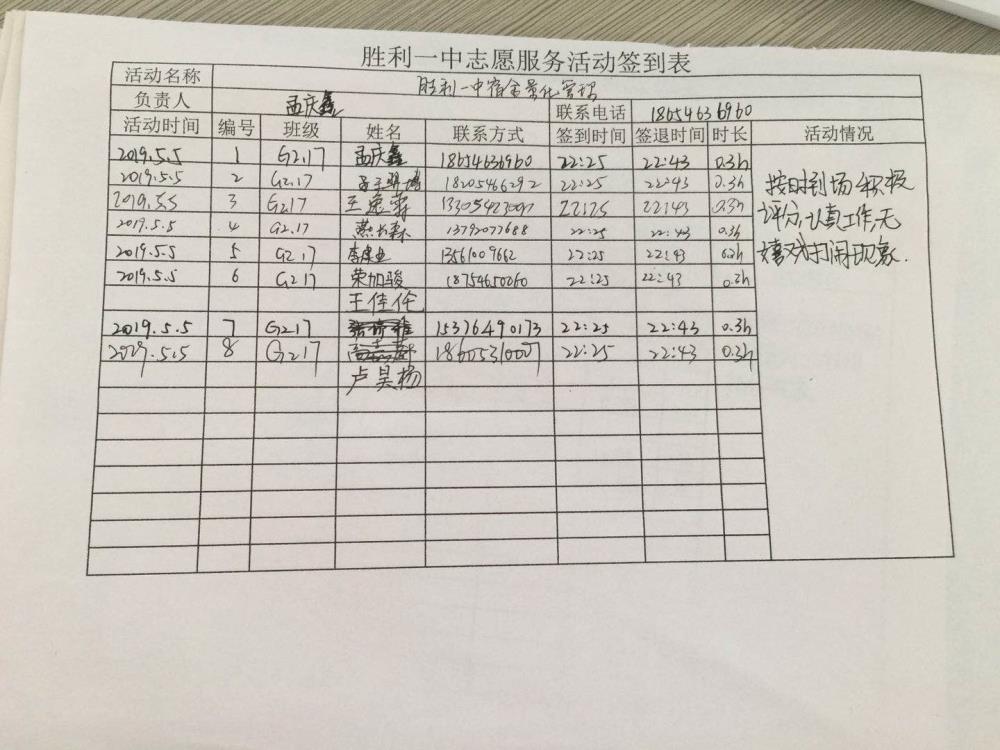 胜利一中志愿服务活动签到表
活动名称 胜利一中宿舍量化管理
负责人 孟庆鑫 联系电话 18654636960
活动时间 编号 班级 姓名 联系方式 签到时间 签退时间 时长 活动情况
2019.5.5 1 G2.17 孟庆鑫 18654636960 22:25 22:43 0.3h
2019.5.5 2 G2.17 18205466292 22:25 22:43 0.3h
2019.5.5 3 G2.17 22:25 22:43 0.3h
2019.5.5 4 G2.17 13792077688 22:25 22:43 0.3h
2019.5.5 5 G217 李建业 13561009662 22:25 22:43 0.3h
2019.5.5 6 G217 荣加骏 18754650060 22:25 22:43 0.3h
王佳伦
2019.5.5 7 G217 15376490173 22:25 22:43 0.3h
2029.5.5 8 G217 18605310007 22:25 22:43 0.3h
卢昊杨
按时到场,积极
评分,认真工作,无
嬉戏打闹现象.